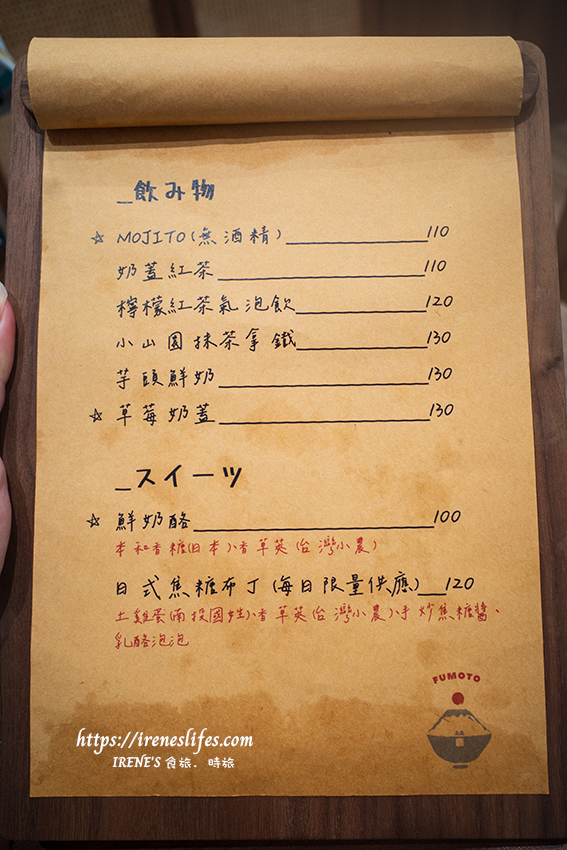 _飲み物
☆ MOJITO(無酒精)____110
奶蓋紅茶____110
檸檬紅茶氣泡飲____120
小山園抹茶拿鐵____130
芋頭鮮奶____130
☆ 草莓奶蓋____130
_スイーツ
☆ 鮮奶酪____100
本和香糖(日本)、香草莢(台灣小農)
日式焦糖布丁(每日限量供應)__120
土雞蛋(南投國姓)、香草莢(台灣小農)、手炒焦糖醬、
乳酪泡泡
FUMOTO
https://ireneslifes.com
IRENE'S 食旅．時旅